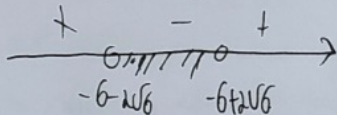 + - +
-6-2√6 -6+2√6